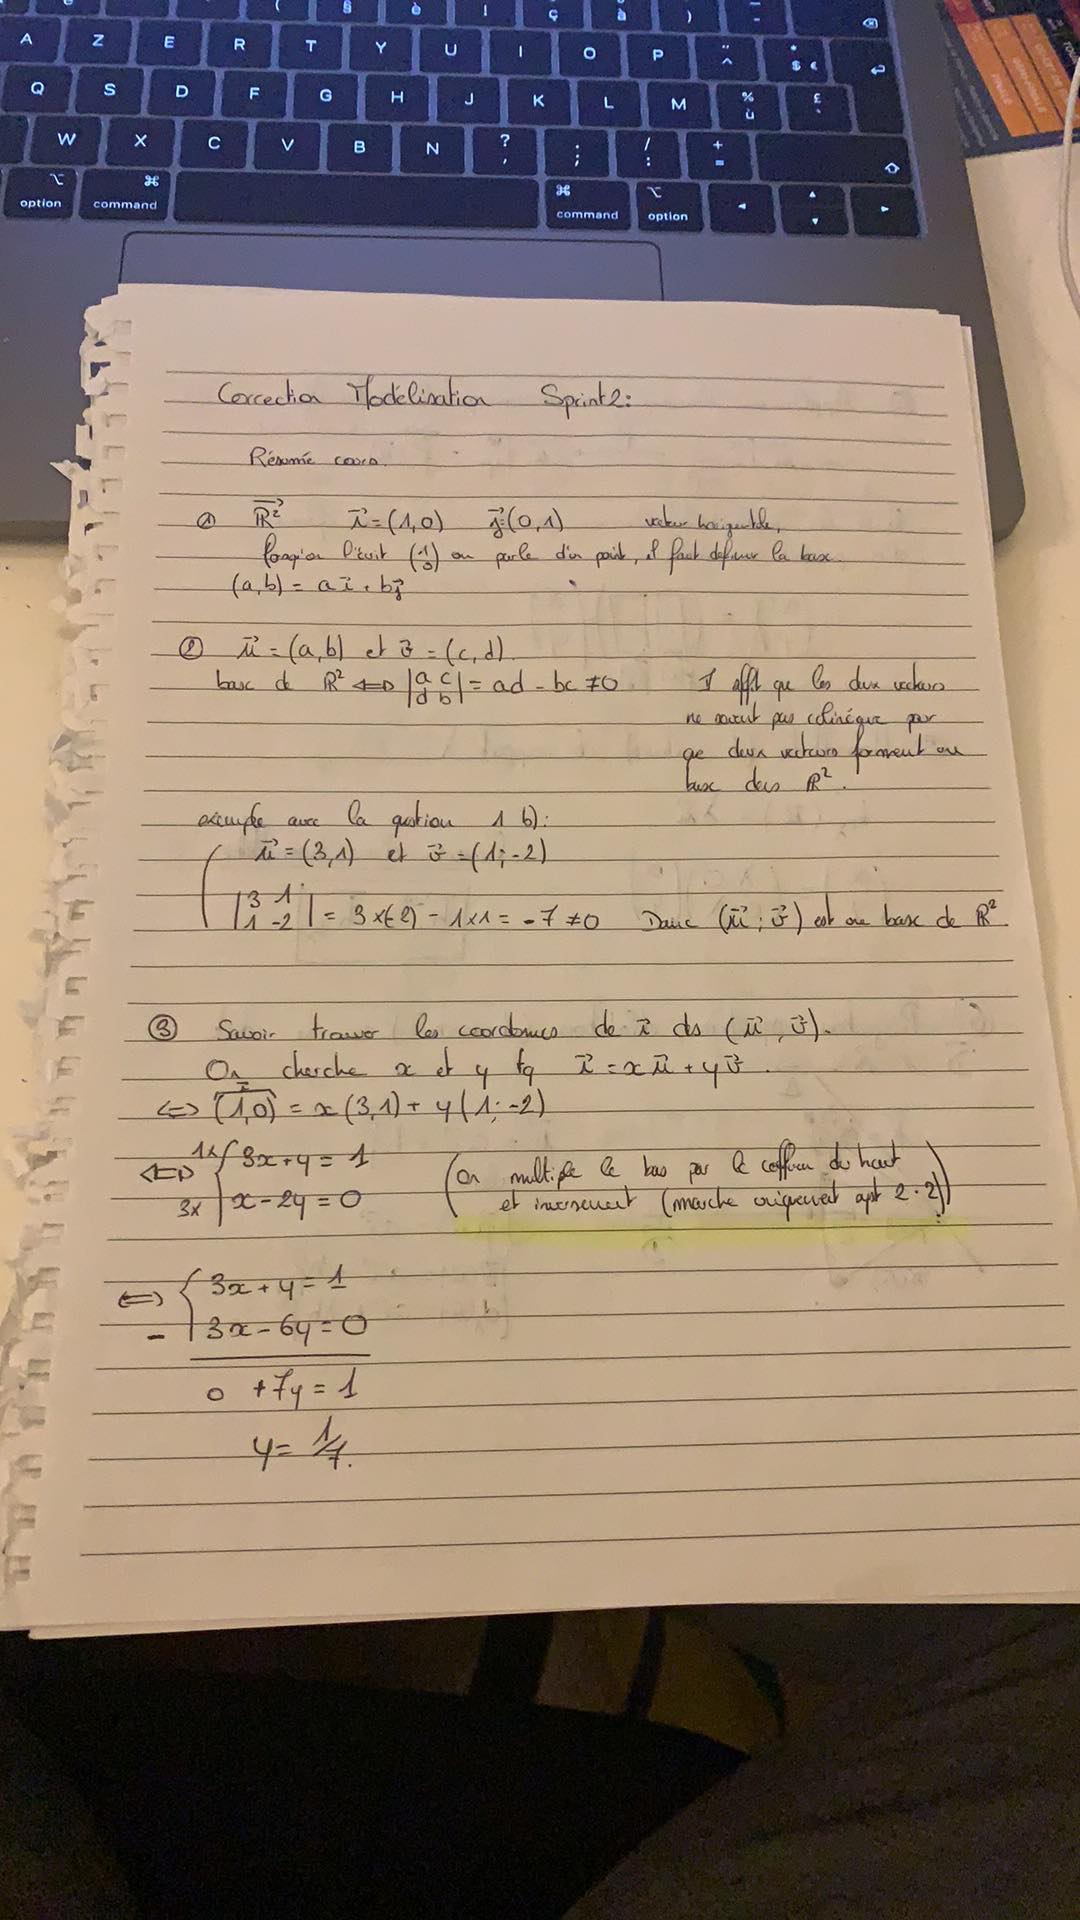 A Z E R T Y U I O P ¨ ^ * $ €
Q S D F G H J K L M % ù £ `
W X C V B N ? , . ; / : + =
option command command option
Correction Modélisation Sprint 2:
Résumé cours.
① ℝ² i⃗ = (1,0) j⃗ = (0,1) vecteur horizontale,
l'écrit on parle d'un point, il faut définir la base
(a,b) = a i⃗ + b j⃗
② u⃗ = (a,b) et v⃗ = (c,d).
base de ℝ² ⇔ |a c| = ad - bc ≠ 0 que les deux vecteurs
|d b|
ne soient pas par
que deux vecteurs forment une
base dans ℝ².
exemple avec la question 1 b):
u⃗ = (3,1) et v⃗ = (1;-2)
|3 1| = 3×(-2) - 1×1 = -7 ≠ 0 Donc (u⃗ ; v⃗) est une base de ℝ²
|1 -2|
③ Savoir trouver les coordonnées de i⃗ ds (u⃗, v⃗).
On cherche x et y tq i⃗ = x u⃗ + y v⃗.
⇔ (1,0) = x(3,1) + y(1;-2)
⇔ 1× { 3x + y = 1 (On multiplie le bas par le du haut
3× { x - 2y = 0 et inversement (marche uniquement 2·2))
⇔ { 3x + y = 1
- { 3x - 6y = 0
0 + 7y = 1
y = 1/7.